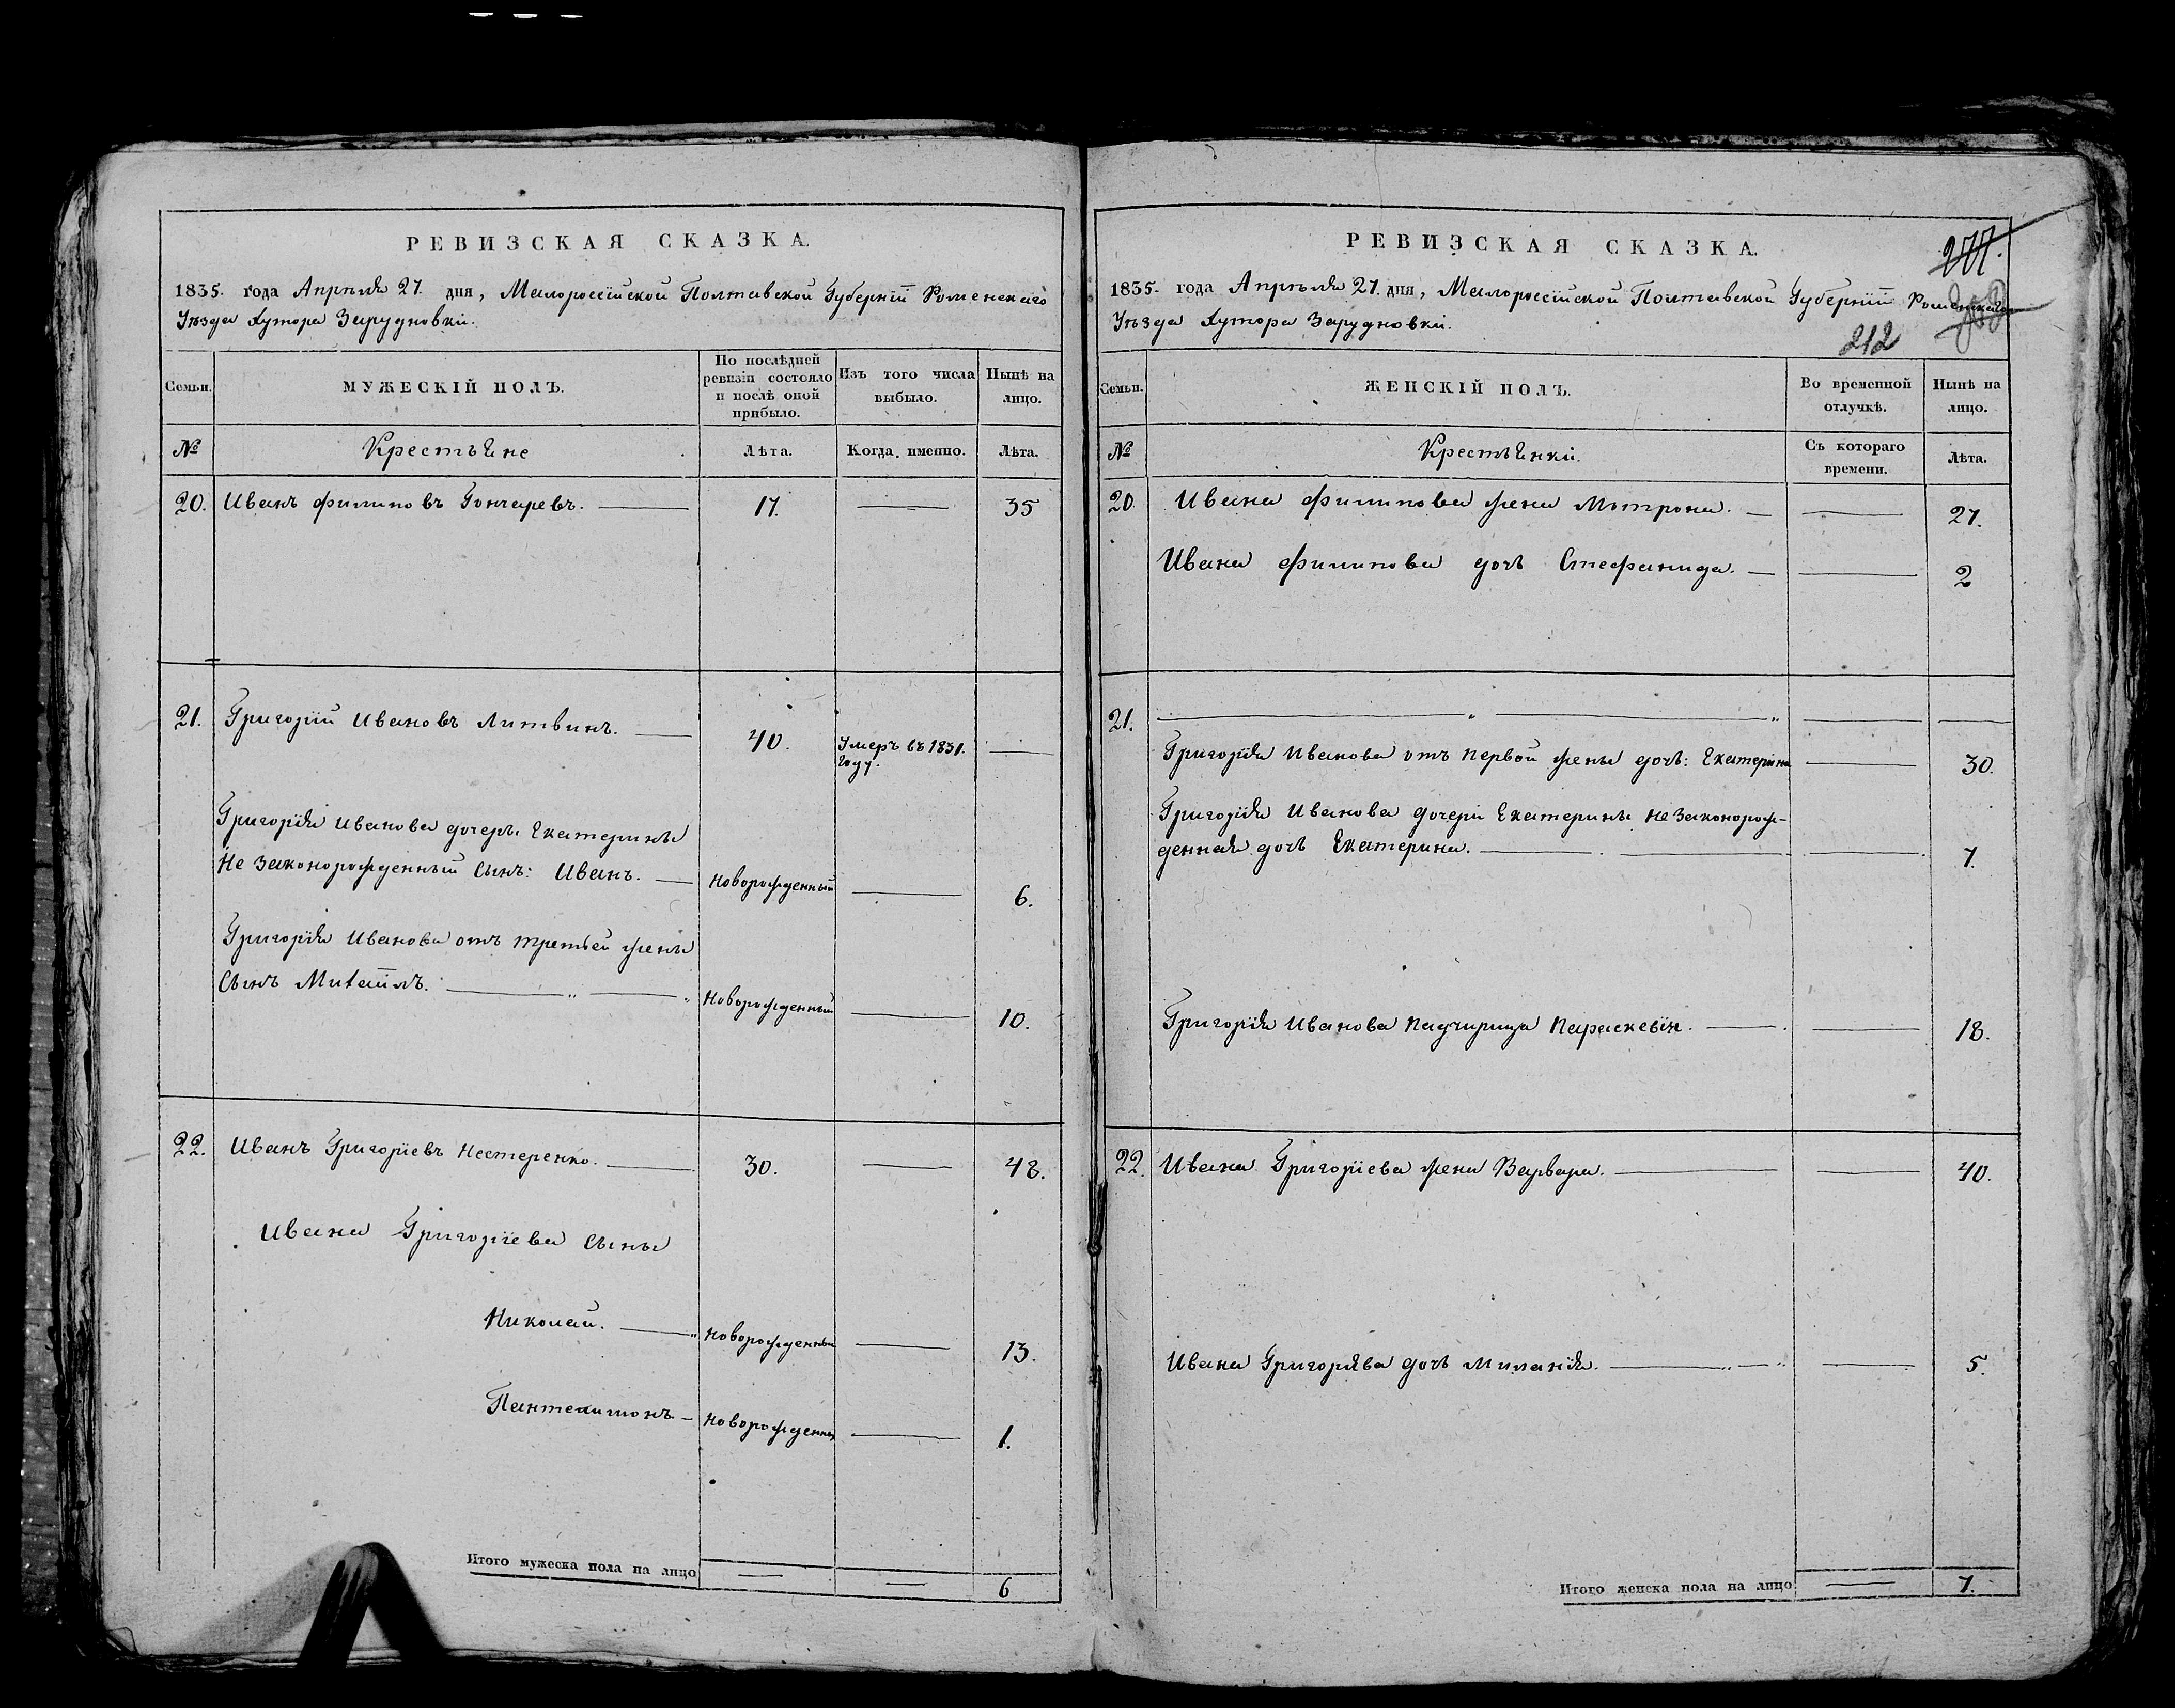 РЕВИЗСКАЯ СКАЗКА.
1835. года Апрѣля 27. дня, Малороссійской Полтавской Губерніи Роменскаго
Уѣзда Хутора Зарудновки.
Семьи.
МУЖЕСКІЙ ПОЛЪ.
По послѣдней ревизіи состояло и послѣ оной прибыло.
Изъ того числа выбыло.
Нынѣ на лицо.
№
Крестьяне
Лѣта.
Когда именно.
Лѣта.
20. Иванъ Филиповъ Гончаревъ. 17. 35
21. Григорій Ивановъ Литвинъ. 40. Умеръ въ 1831. году.
Григорія Иванова дочеръ Екатерины
Не законорожденный Сынъ: Иванъ. Новорожденный 6.
Григорія Иванова отъ третьей жены
Сынъ Михаилъ. Новорожденный 10.
22. Иванъ Григоріевъ Нестеренко. 30. 48.
Ивана Григоріева Сыны
Николай. Новорожденный 13.
Пантелимонъ Новорожденный 1.
Итого мужеска пола на лицо 6
РЕВИЗСКАЯ СКАЗКА.
1835. года Апрѣля 27. дня, Малороссійской Полтавской Губерніи Роменскаго
Уѣзда Хутора Зарудновки.
212
Семьи.
ЖЕНСКІЙ ПОЛЪ.
Во временной отлучкѣ.
Нынѣ на лицо.
№
Крестьянки.
Съ котораго времени.
Лѣта.
20. Ивана Филипова жена Мотрона. 27.
Ивана Филипова дочь Стефанида. 2
21.
Григорія Иванова отъ первой жены дочь: Екатерина 30.
Григорія Иванова дочери Екатерины не законорож-
денная дочь Екатерина. 7.
Григорія Иванова Падчирица Параскевія. 18.
22. Ивана Григоріева жена Варвара. 40.
Ивана Григорява дочь Миланія. 5.
Итого женска пола на лицо 7.